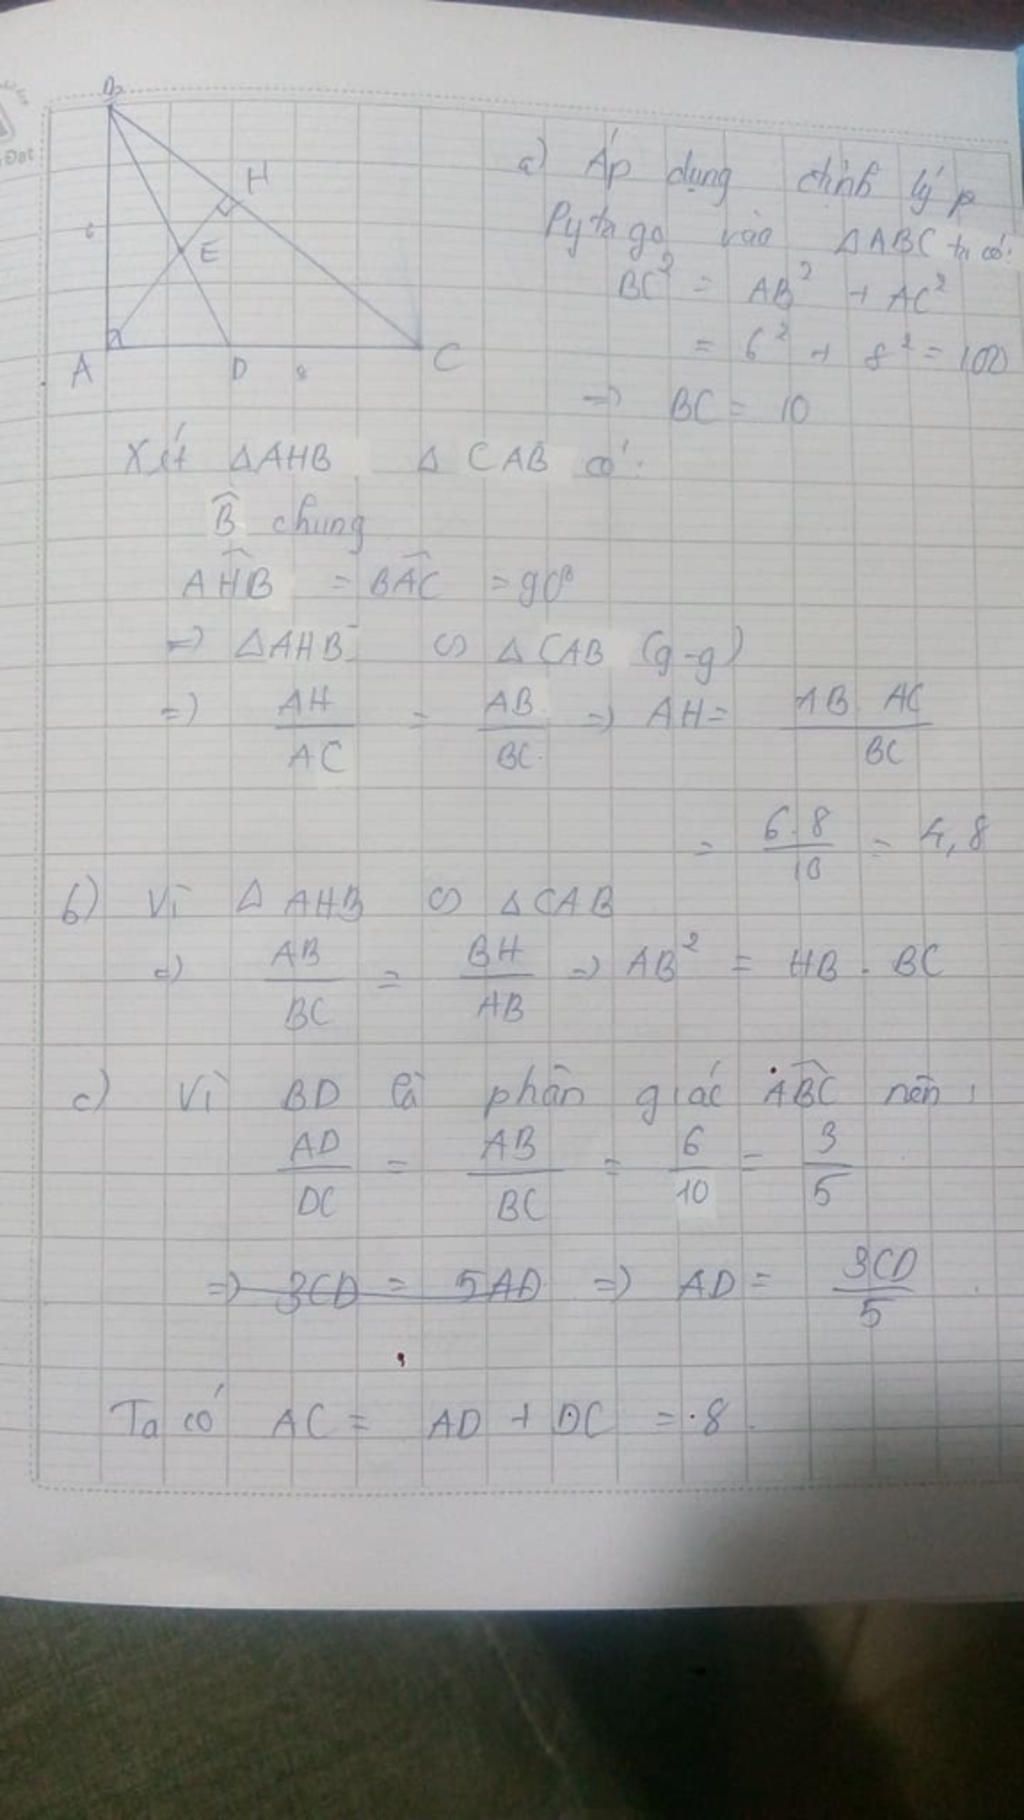 B
H
6
E
A
D
8
C
Đạt
a) Áp dụng định lý P
Pytago vào △ABC ta có:
BC² = AB² + AC²
= 6² + 8² = 100
=> BC = 10
Xét △AHB △ CAB có:
B̂ chung
AĤB = BÂC = 90°
=> △AHB ∽ △CAB (g-g)
=> AH/AC = AB/BC => AH = AB AC/BC
= 6.8/10 = 4,8
b) Vì △ AHB ∽ △CAB
=> AB/BC = BH/AB => AB² = HB . BC
c) Vì BD là phân giác AB̂C nên
AD/DC = AB/BC = 6/10 = 3/5
=> 3CD = 5AD => AD = 3CD/5
Ta có AC = AD + DC = 8.